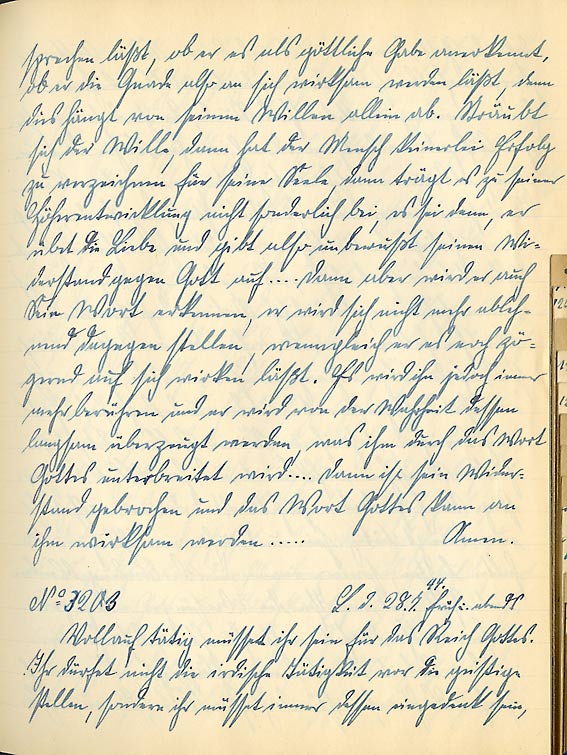 sprechen läßt, ob er es als göttliche Gabe anerkennt,
ob er die Gnade also an sich wirksam werden läßt, denn
dies hängt von seinem Willen allein ab. Sträubt
sich der Wille, dann hat der Mensch keinerlei Erfolg
zu verzeichnen für seine Seele, dann trägt es zu seiner
Höherentwicklung nicht sonderlich bei, es sei denn, er
übet die Liebe und gibt also unbewußt seinen Wi-
derstand gegen Gott auf .... Dann aber wird er auch
Sein Wort erkennen, er wird sich nicht mehr ableh-
nend dagegen stellen, wenngleich er es noch zö-
gernd auf sich wirken läßt. Es wird ihn jedoch immer
mehr berühren und er wird von der Wahrheit dessen
langsam überzeugt werden, was ihm durch das Wort
Gottes unterbreitet wird .... Dann ist sein Wider-
stand gebrochen und das Wort Gottes kann an
ihm wirksam werden ..... Amen.
No 3203 28.7. 44. früh u. abends
Vollauf tätig müsset ihr sein für das Reich Gottes.
Ihr dürfet nicht die irdische Tätigkeit vor die geistige
stellen, sondern ihr müsset immer dessen eingedenk sein,